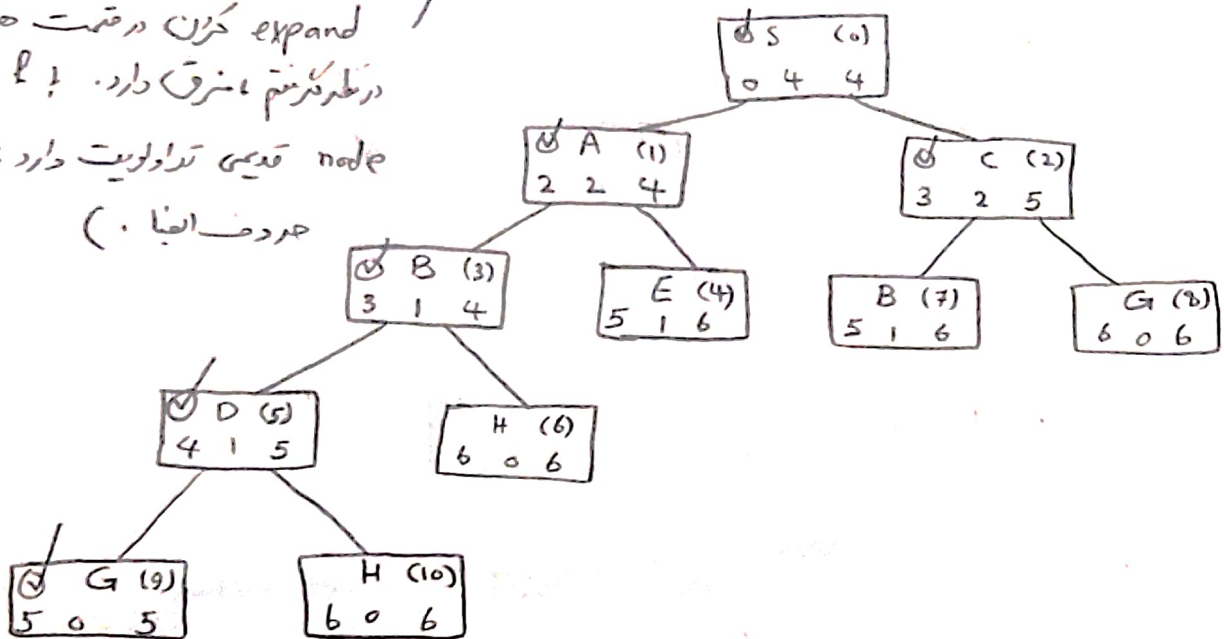 expand کردن در قسمت
در نظر گرفتم ، فرق دارد . !
node قدیمی تر اولویت دارد
حروف الفبا . )
S (0)
0 4 4
A (1)
2 2 4
C (2)
3 2 5
B (3)
3 1 4
E (4)
5 1 6
B (7)
5 1 6
G (8)
6 0 6
D (5)
4 1 5
H (6)
6 0 6
G (9)
5 0 5
H (10)
6 0 6